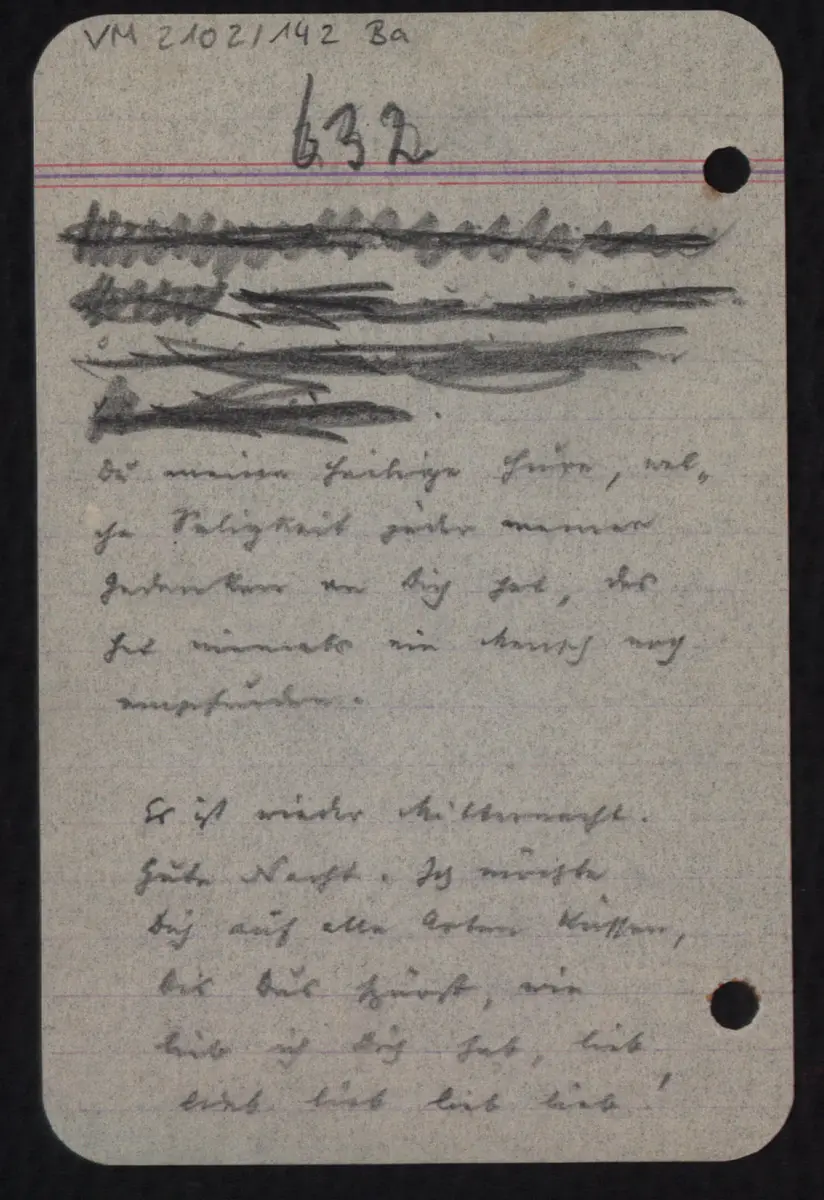 VM 2102/142 Ba
632
Du meine heilige Hure, wel„
che Seligkeit jeder meiner
Gedanken an Dich hat, das
hat niemals ein Mensch noch
empfunden.
Es ist wieder Mitternacht.
Gute Nacht. Ich möchte
Dich auf alle Arten küssen,
bis Du's spürst, wie
lieb ich Dich hab, lieb,
lieb lieb lieb lieb!